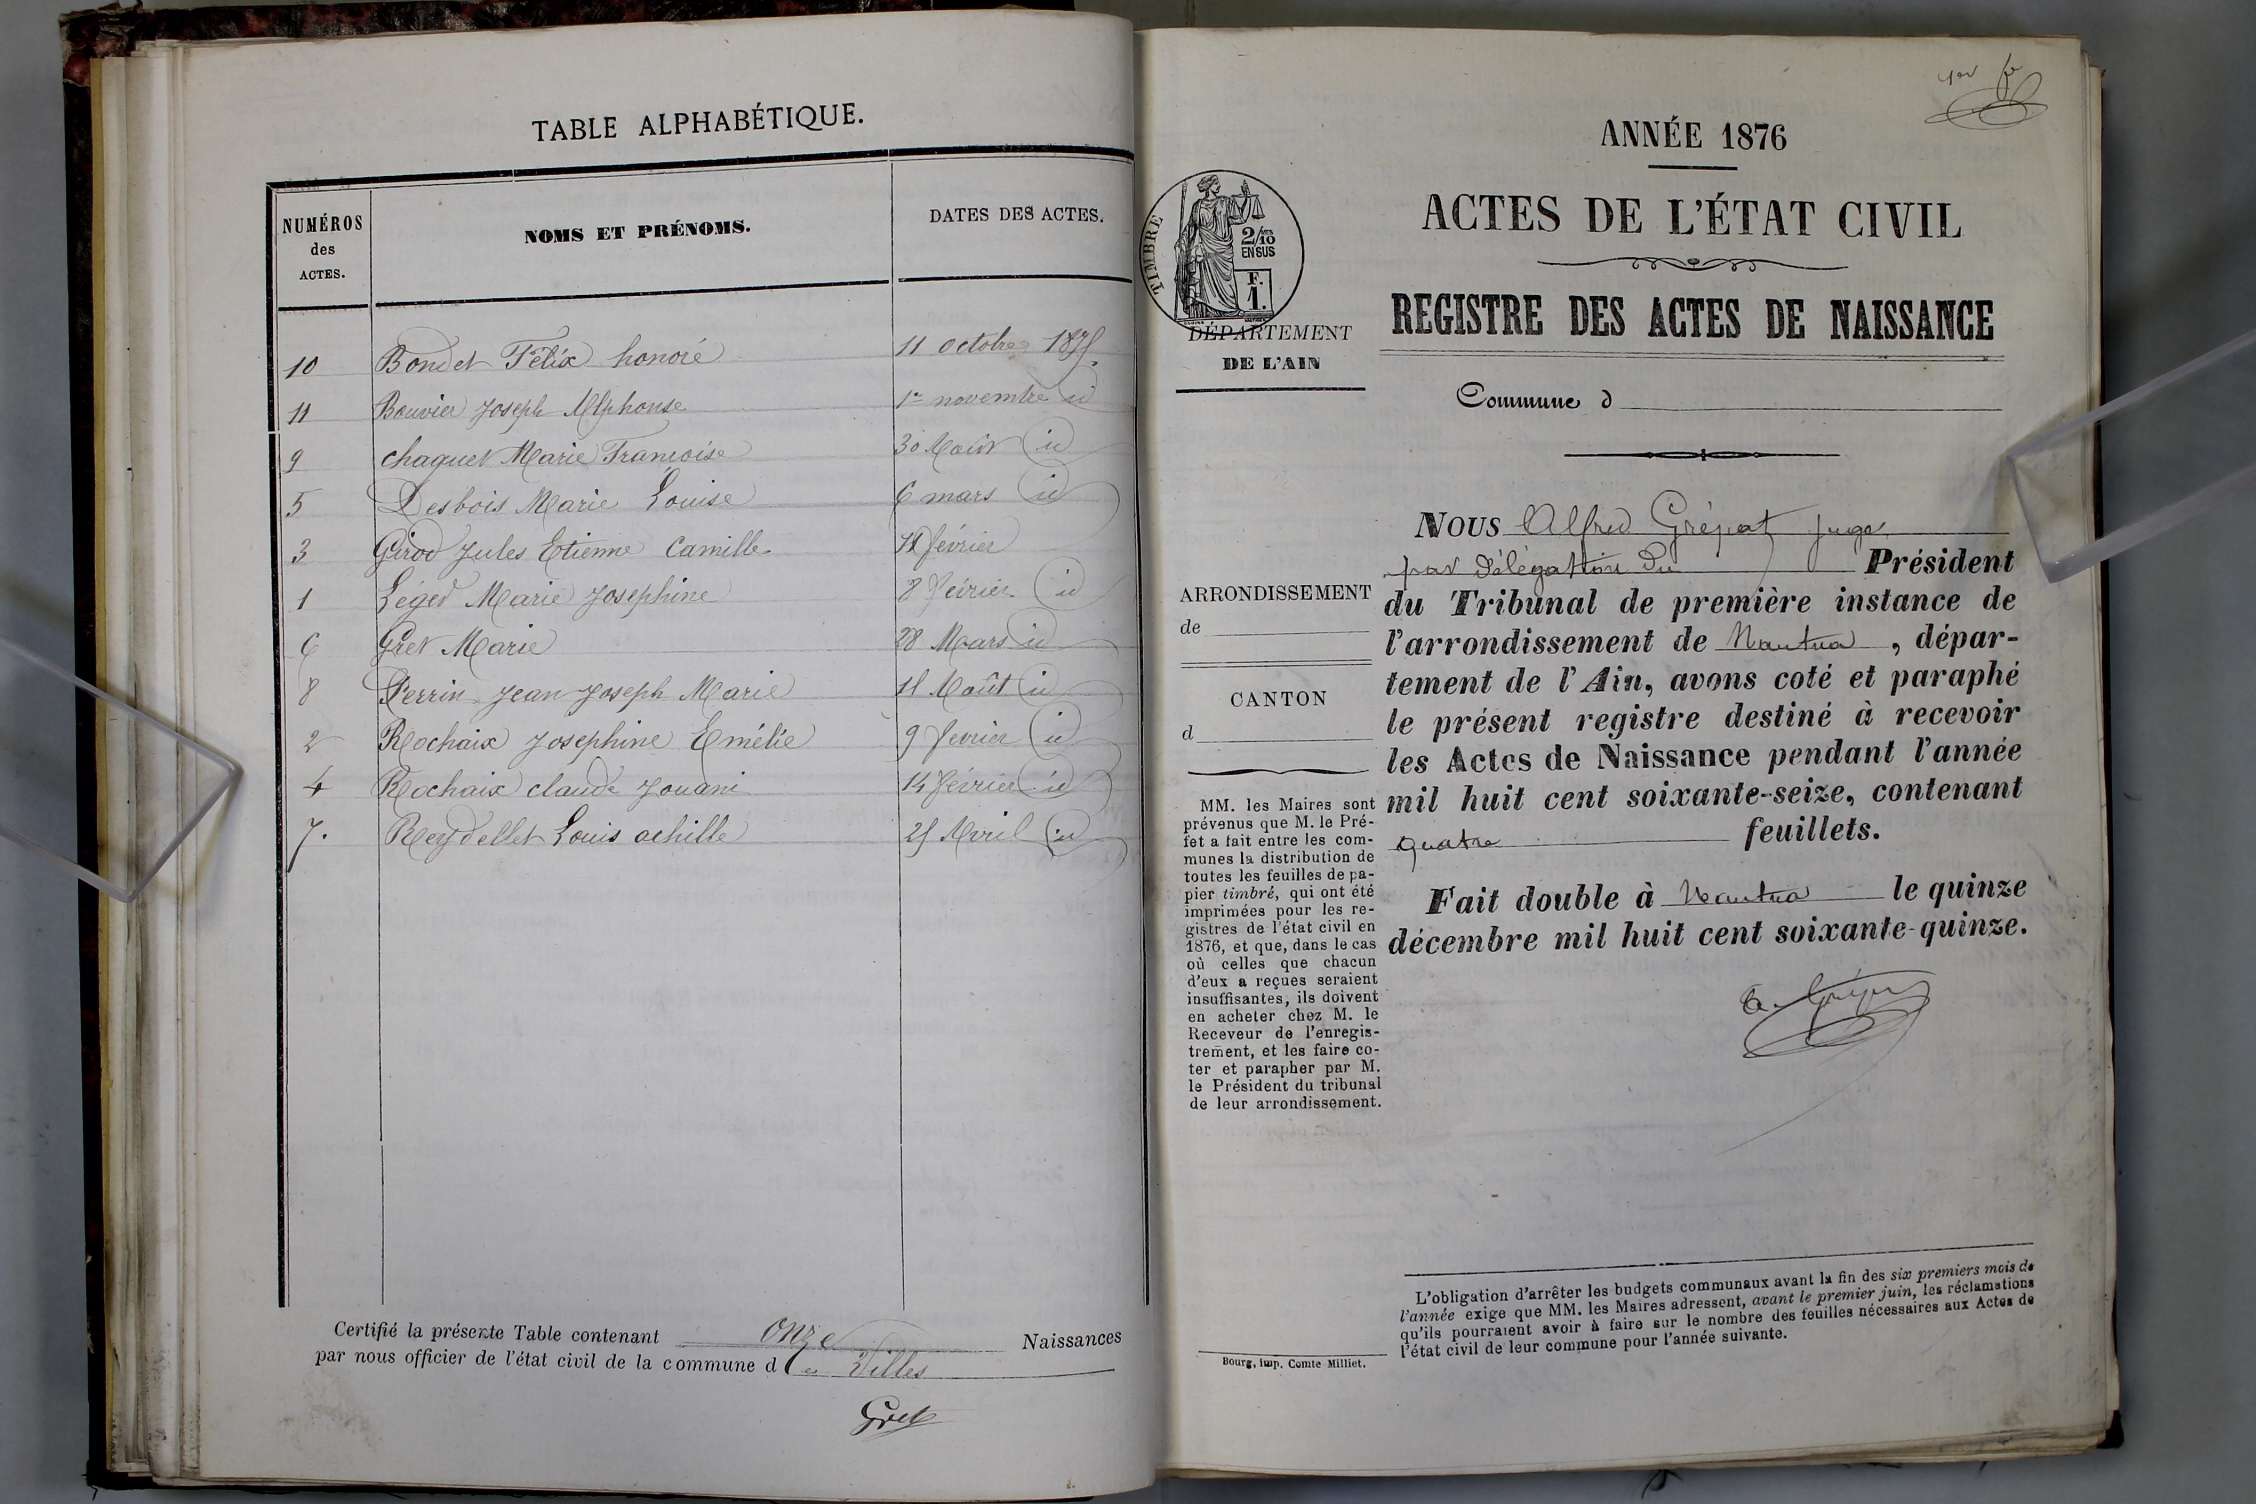 TABLE ALPHABÉTIQUE.
NUMÉROS des ACTES.
NOMS ET PRÉNOMS.
DATES DES ACTES.
10 Bondet Félix honoré 11 octobre 1875.
11 Bouvier Joseph Alphonse 1er novembre id
9 chaquet Marie Francoise 30 Août id
5 Desbois Marie Louise 6 mars id
3 Girod Jules Etienne Camille février
1 Léger Marie Josephine 8 février id
6 Gret Marie 28 Mars id
8 Perrin Jean Joseph Marie 11 Août id
2 Rochaix Josephine Emélie 9 fevrier id
4 Rochaix claude Jouani 14 février id
7. Reydellet Louis achille 25 Avril id
Certifié la présente Table contenant onze Naissances
par nous officier de l'état civil de la commune d es Villes
Gret
ANNÉE 1876
ACTES DE L'ÉTAT CIVIL
REGISTRE DES ACTES DE NAISSANCE
TIMBRE
2/10
EN SUS
F.
1.
DÉPARTEMENT
DE L'AIN
Commune d
ARRONDISSEMENT
de
CANTON
d
MM. les Maires sont
prévenus que M. le Pré-
fet a fait entre les com-
munes la distribution de
toutes les feuilles de pa-
pier timbré, qui ont été
imprimées pour les re-
gistres de l'état civil en
1876, et que, dans le cas
où celles que chacun
d'eux a reçues seraient
insuffisantes, ils doivent
en acheter chez M. le
Receveur de l'enregis-
trement, et les faire co-
ter et parapher par M.
le Président du tribunal
de leur arrondissement.
Nous Alfred Grépat juge
par délégation du Président
du Tribunal de première instance de
l'arrondissement de Nantua, dépar-
tement de l'Ain, avons coté et paraphé
le présent registre destiné à recevoir
les Actes de Naissance pendant l'année
mil huit cent soixante-seize, contenant
quatre feuillets.
Fait double à Nantua le quinze
décembre mil huit cent soixante-quinze.
L'obligation d'arrêter les budgets communaux avant la fin des six premiers mois de
l'année exige que MM. les Maires adressent, avant le premier juin, les réclamations
qu'ils pourraient avoir à faire sur le nombre des feuilles nécessaires aux Actes de
l'état civil de leur commune pour l'année suivante.
Bourg, imp. Comte-Milliet.